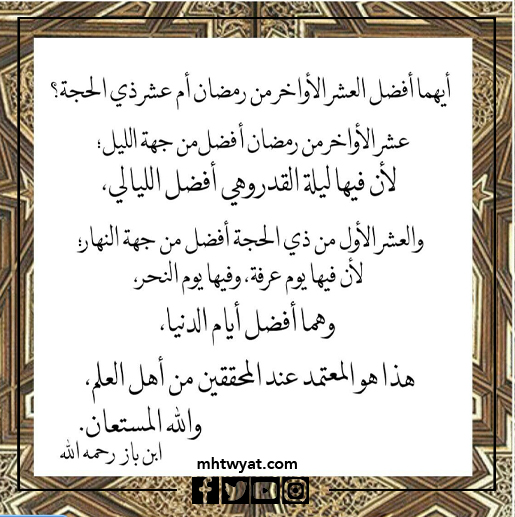 أيهما أفضل العشر الأواخر من رمضان أم عشر ذي الحجة؟
عشر الأواخر من رمضان أفضل من جهة الليل؛
لأن فيها ليلة القدر وهي أفضل الليالي،
والعشر الأول من ذي الحجة أفضل من جهة النهار؛
لأن فيها يوم عرفة، وفيها يوم النحر،
وهما أفضل أيام الدنيا،
هذا هو المعتمد عند المحققين من أهل العلم،
والله المستعان.
ابن باز رحمه الله
mhtwyat.com